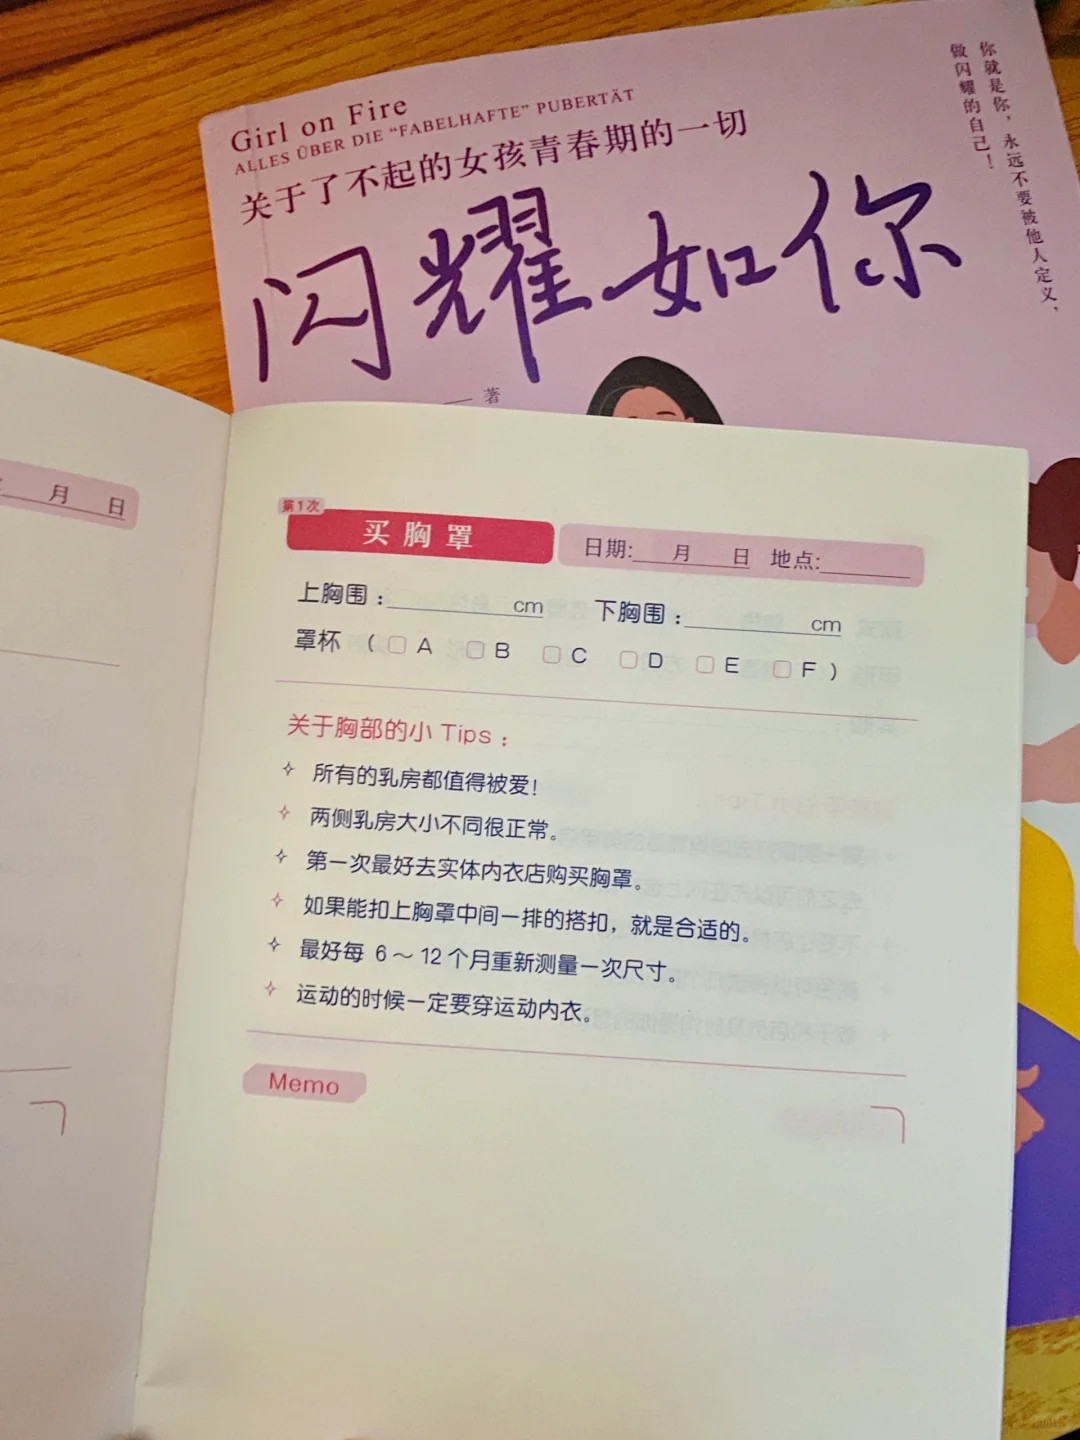 Girl on Fire
ALLES ÜBER DIE "FABELHAFTE" PUBERTÄT
关于了不起的女孩青春期的一切
闪耀如你
你就是你，永远不要被他人定义，
做闪耀的自己！
著
月 日
第1次
买胸罩
日期:____月____日 地点:________
上胸围：____________cm 下胸围：____________cm
罩杯 （□A □B □C □D □E □F）
关于胸部的小 Tips：
所有的乳房都值得被爱！
两侧乳房大小不同很正常。
第一次最好去实体内衣店购买胸罩。
如果能扣上胸罩中间一排的搭扣，就是合适的。
最好每 6～12个月重新测量一次尺寸。
运动的时候一定要穿运动内衣。
Memo